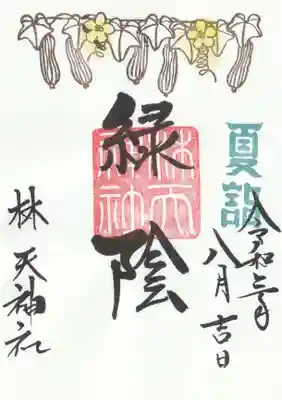 夏詣
令和三年
八月吉日
緑陰
林天
神社
林天神社